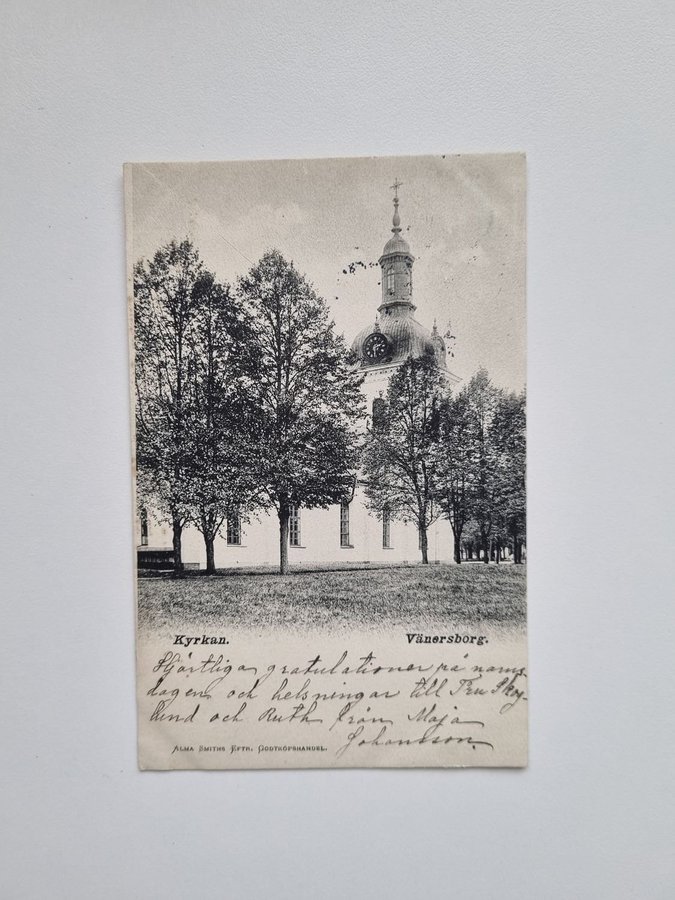 Kyrkan. Vänersborg.
Hjärtliga gratulationer på namns
dagen och helsningar till Fru Skog-
lund och Ruth från Maja
Johansson.
ALMA SMITHS EFTR. GODTKÖPSHANDEL.